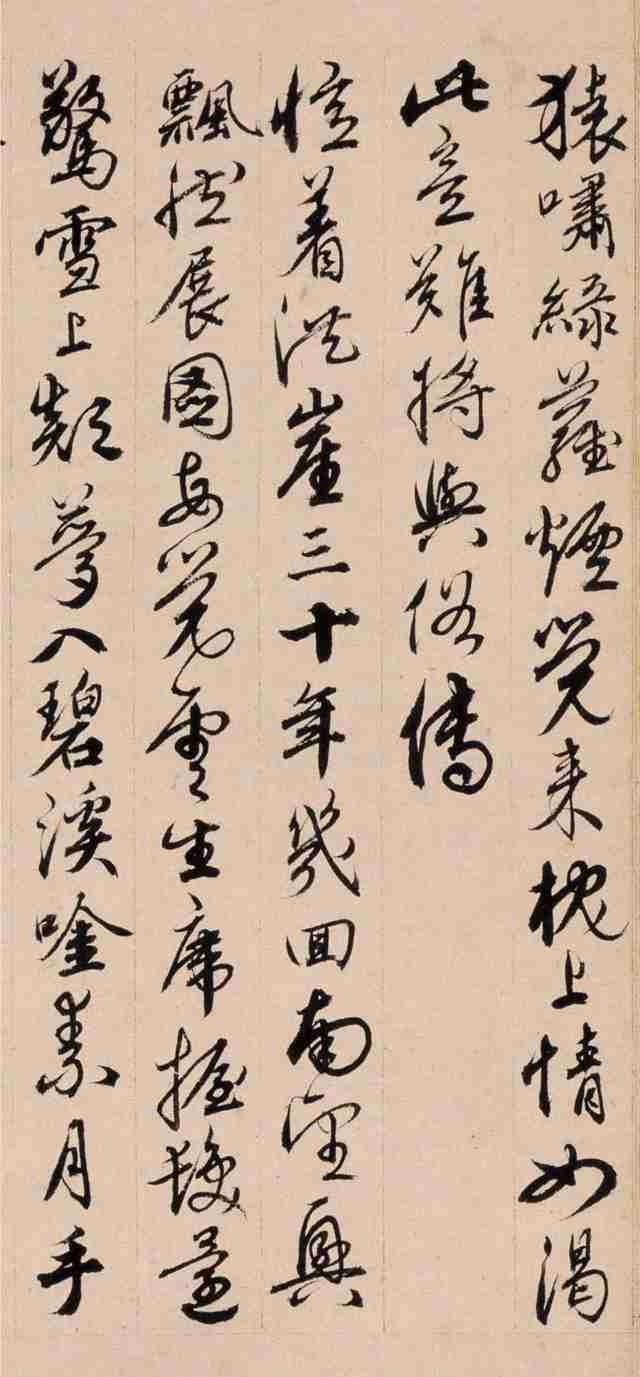 猿嘯綠蘿煙覺来枕上情如渴
此意難將與俗傳
憶着洪崖三十年幾回南望興
飄然展圖每覺雲生席握髮還
驚雪上顛夢入碧溪唫素月手